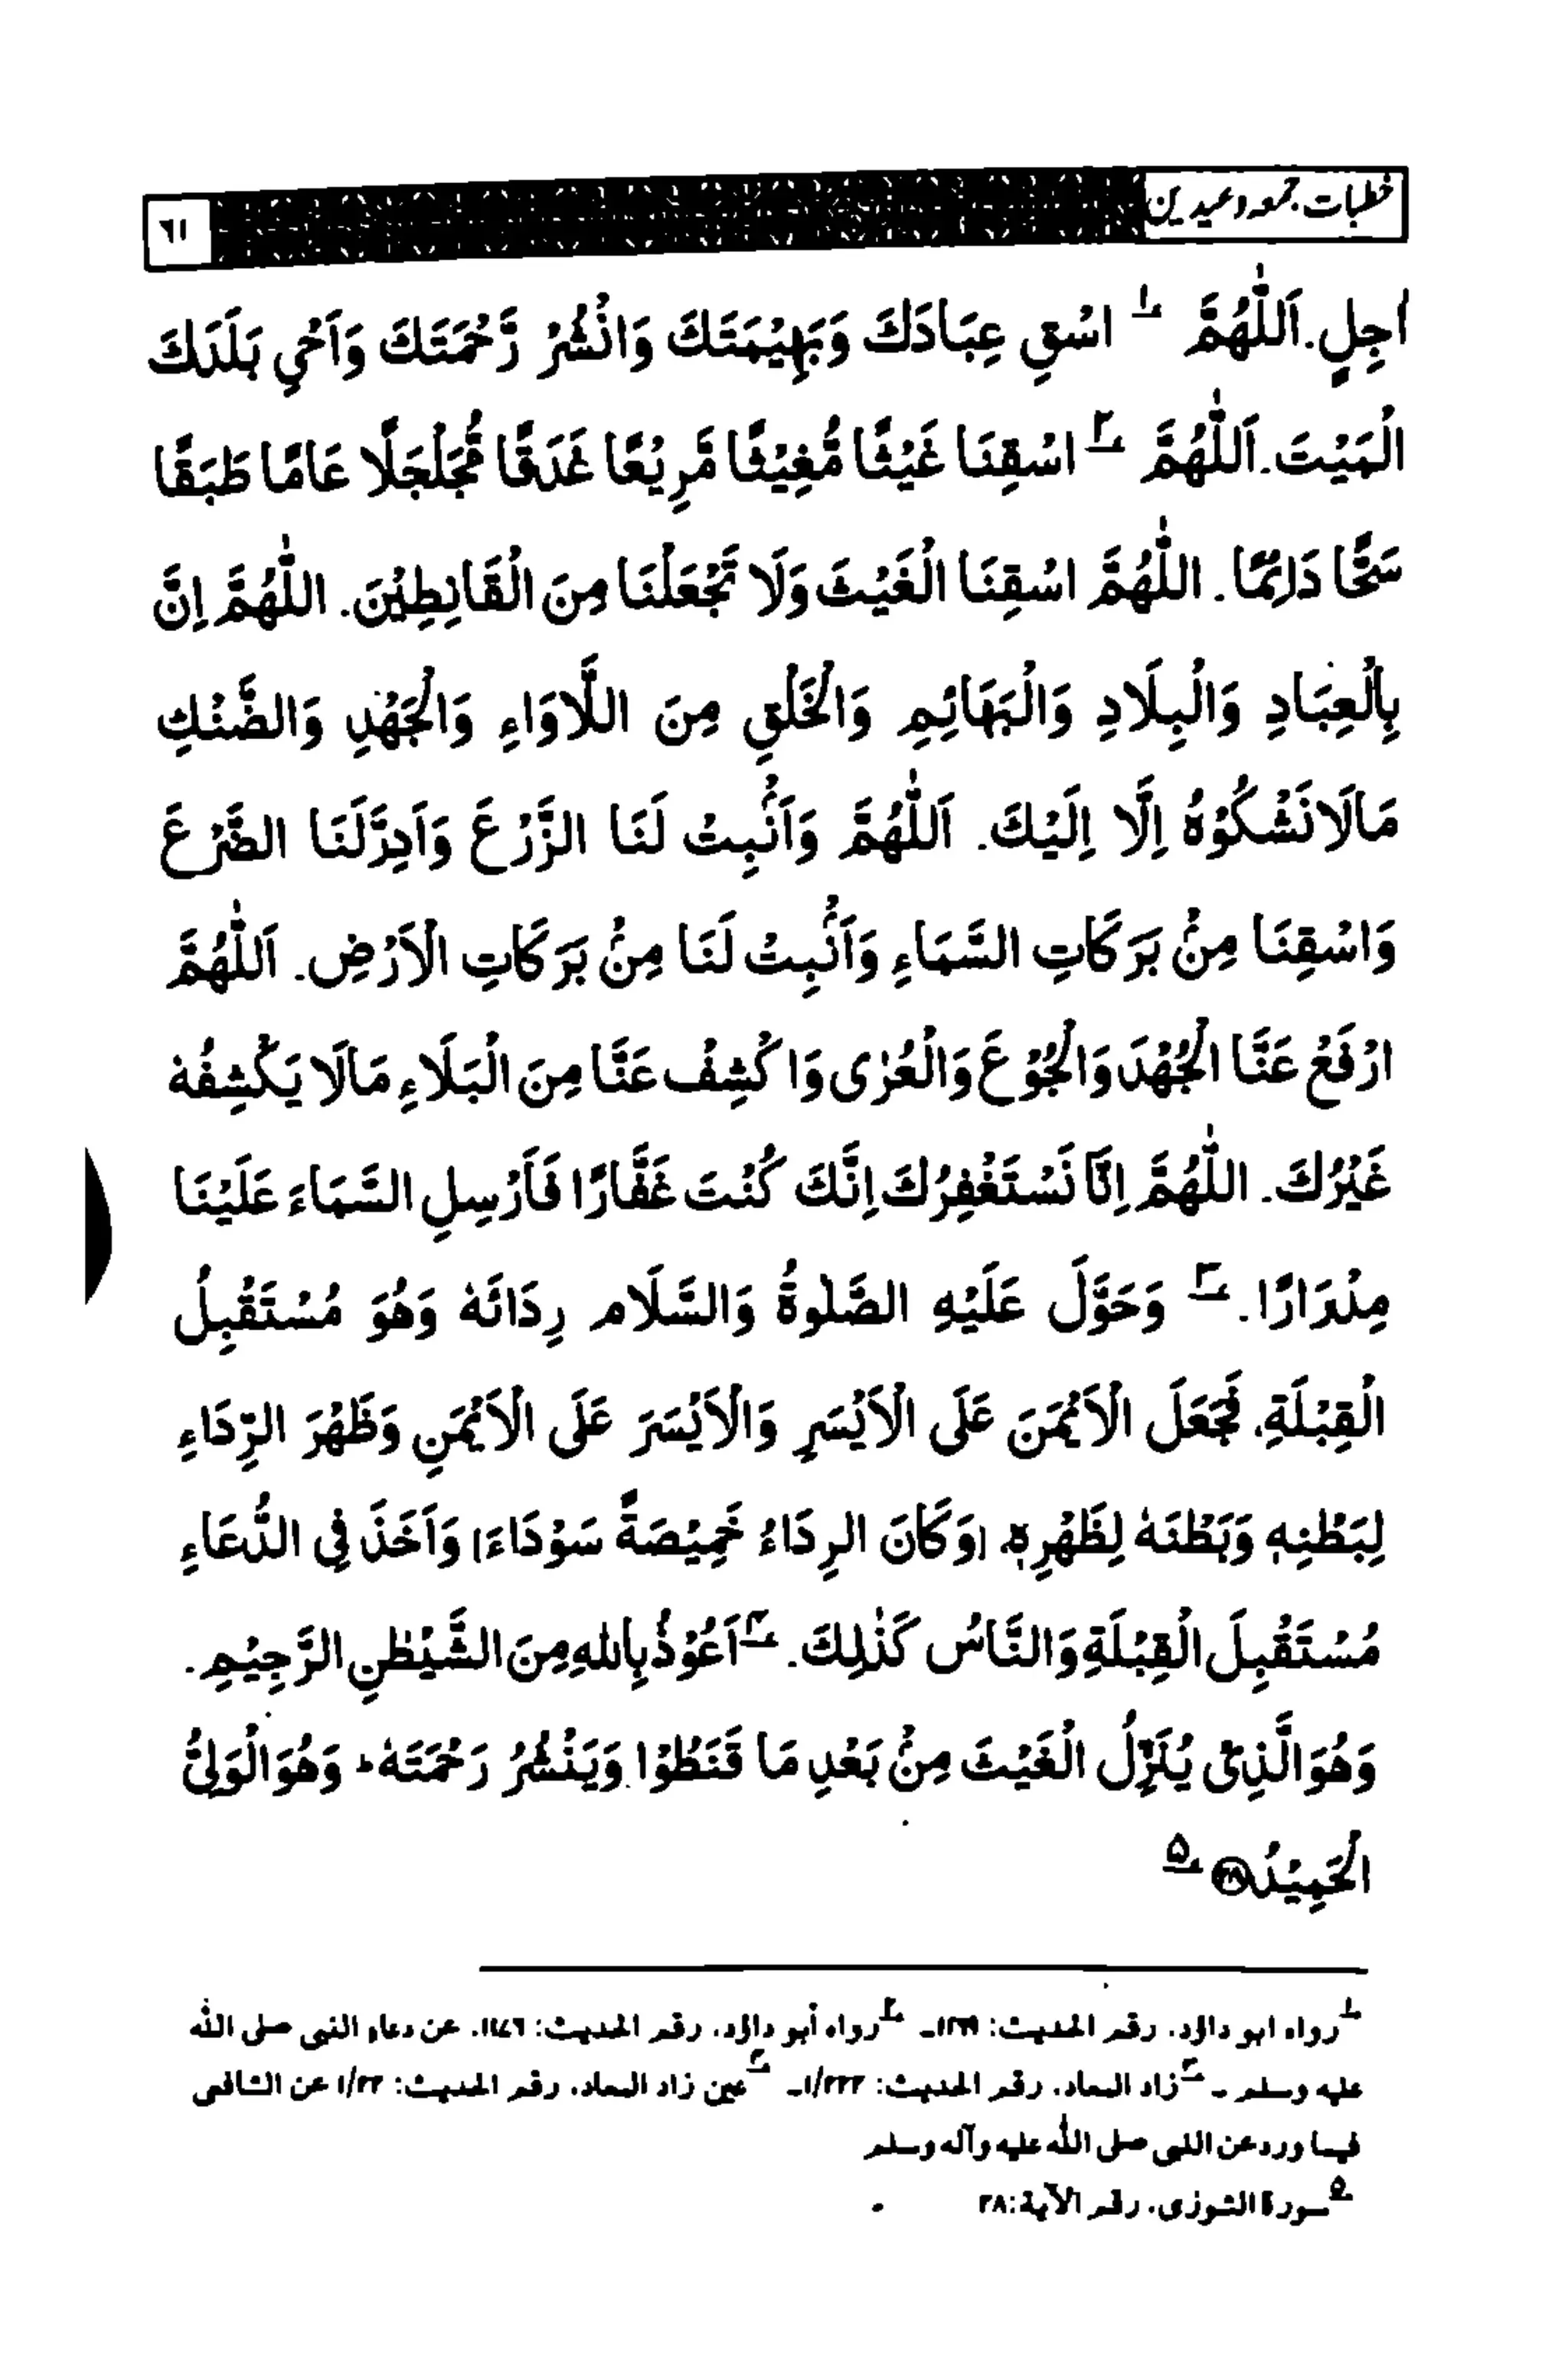 خطبات جمعہ و عیدین
٦١
اٰجِلٍ. اَللّٰهُمَّ ١ اسْقِ عِبَادَكَ وَبَهِيْمَتَكَ وَانْشُرْ رَّحْمَتَكَ وَاَحْيِ بَلَدَكَ
الْمَيْتَ. اَللّٰهُمَّ ٢ اسْقِنَا غَيْثًا مُّغِيْثًا مَّرِيْعًا غَدَقًا مُّجَلْجَلًا عَامًّا طَبَقًا
سَحًّا دَائِمًا. اللّٰهُمَّ اسْقِنَا الْغَيْثَ وَلَا تَجْعَلْنَا مِنَ الْقَانِطِيْنَ. اللّٰهُمَّ اِنَّ
بِالْعِبَادِ وَالْبِلَادِ وَالْبَهَائِمِ وَالْخَلْقِ مِنَ اللَّاوَاءِ وَالْجَهْدِ وَالضَّنْكِ
مَالَا نَشْكُوْهُ اِلَّا اِلَيْكَ. اَللّٰهُمَّ وَاَنْبِتْ لَنَا الزَّرْعَ وَاَدِرَّلَنَا الضَّرْعَ
وَاسْقِنَا مِنْ بَرَكَاتِ السَّمَاءِ وَاَنْبِتْ لَنَا مِنْ بَرَكَاتِ الْاَرْضِ. اَللّٰهُمَّ
ارْفَعْ عَنَّا الْجُهْدَ وَالْجُوْعَ وَالْعُرٰى وَاكْشِفْ عَنَّا مِنَ الْبَلَاءِ مَالَا يَكْشِفُهٗ
غَيْرُكَ. اللّٰهُمَّ اِنَّا نَسْتَغْفِرُكَ اِنَّكَ كُنْتَ غَفَّارًا فَاَرْسِلِ السَّمَاءَ عَلَيْنَا
مِدْرَارًا. ٣ وَحَوَّلَ عَلَيْهِ الصَّلٰوةُ وَالسَّلَام رِدَائَهٗ وَهُوَ مُسْتَقْبِلُ
الْقِبْلَةِ. فَجَعَلَ الْاَيْمَنَ عَلَى الْاَيْسَرِ وَالْاَيْسَرَ عَلَى الْاَيْمَنِ وَظَهْرَ الرِّدَاءِ
لِبَطْنِهٖ وَبَطْنَهٗ لِظَهْرِهٖ. (وَكَانَ الرِدَاءُ خَمِيْصَةً سَوْدَاءَ) وَاَخَذَ فِي الدُّعَاءِ
مُسْتَقْبِلَ الْقِبْلَةِ وَالنَّاسُ كَذٰلِكَ. ٤ اَعُوْذُ بِاللهِ مِنَ الشَّيْطٰنِ الرَّجِيْمِ.
وَهُوَ الَّذِىْ يُنَزِّلُ الْغَيْثَ مِنْ بَعْدِ مَا قَنَطُوْا وَيَنْشُرُ رَحْمَتَهٗ ؕ وَهُوَ الْوَلِىُّ
الْحَمِيْدُ ﴿٢٨﴾ ٥
١ رواه ابو داؤد. رقم الحديث: ١١٦٩ـ ٢ رواه أبو داؤد. رقم الحديث: ١١٧٦. عن دعاء النبى صلى الله
عليه وسلم ـ ٣ زاد المعاد. رقم الحديث: ١/٢٢٣ـ ٤ عين زاد المعاد. رقم الحديث: ١/٢٢ عن الشافعى
فيما ورد عن النبى صلى الله عليه وآله وسلم
٥ سورة الشورٰى. رقم الآية: ٢٨